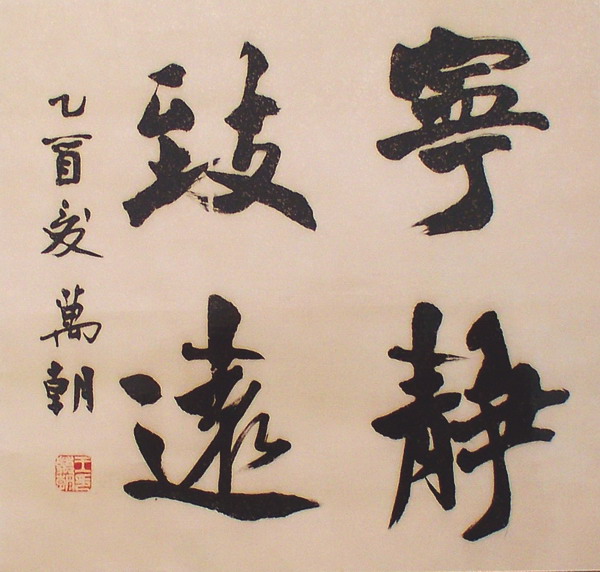 寧靜
致遠
乙酉夏 萬朝